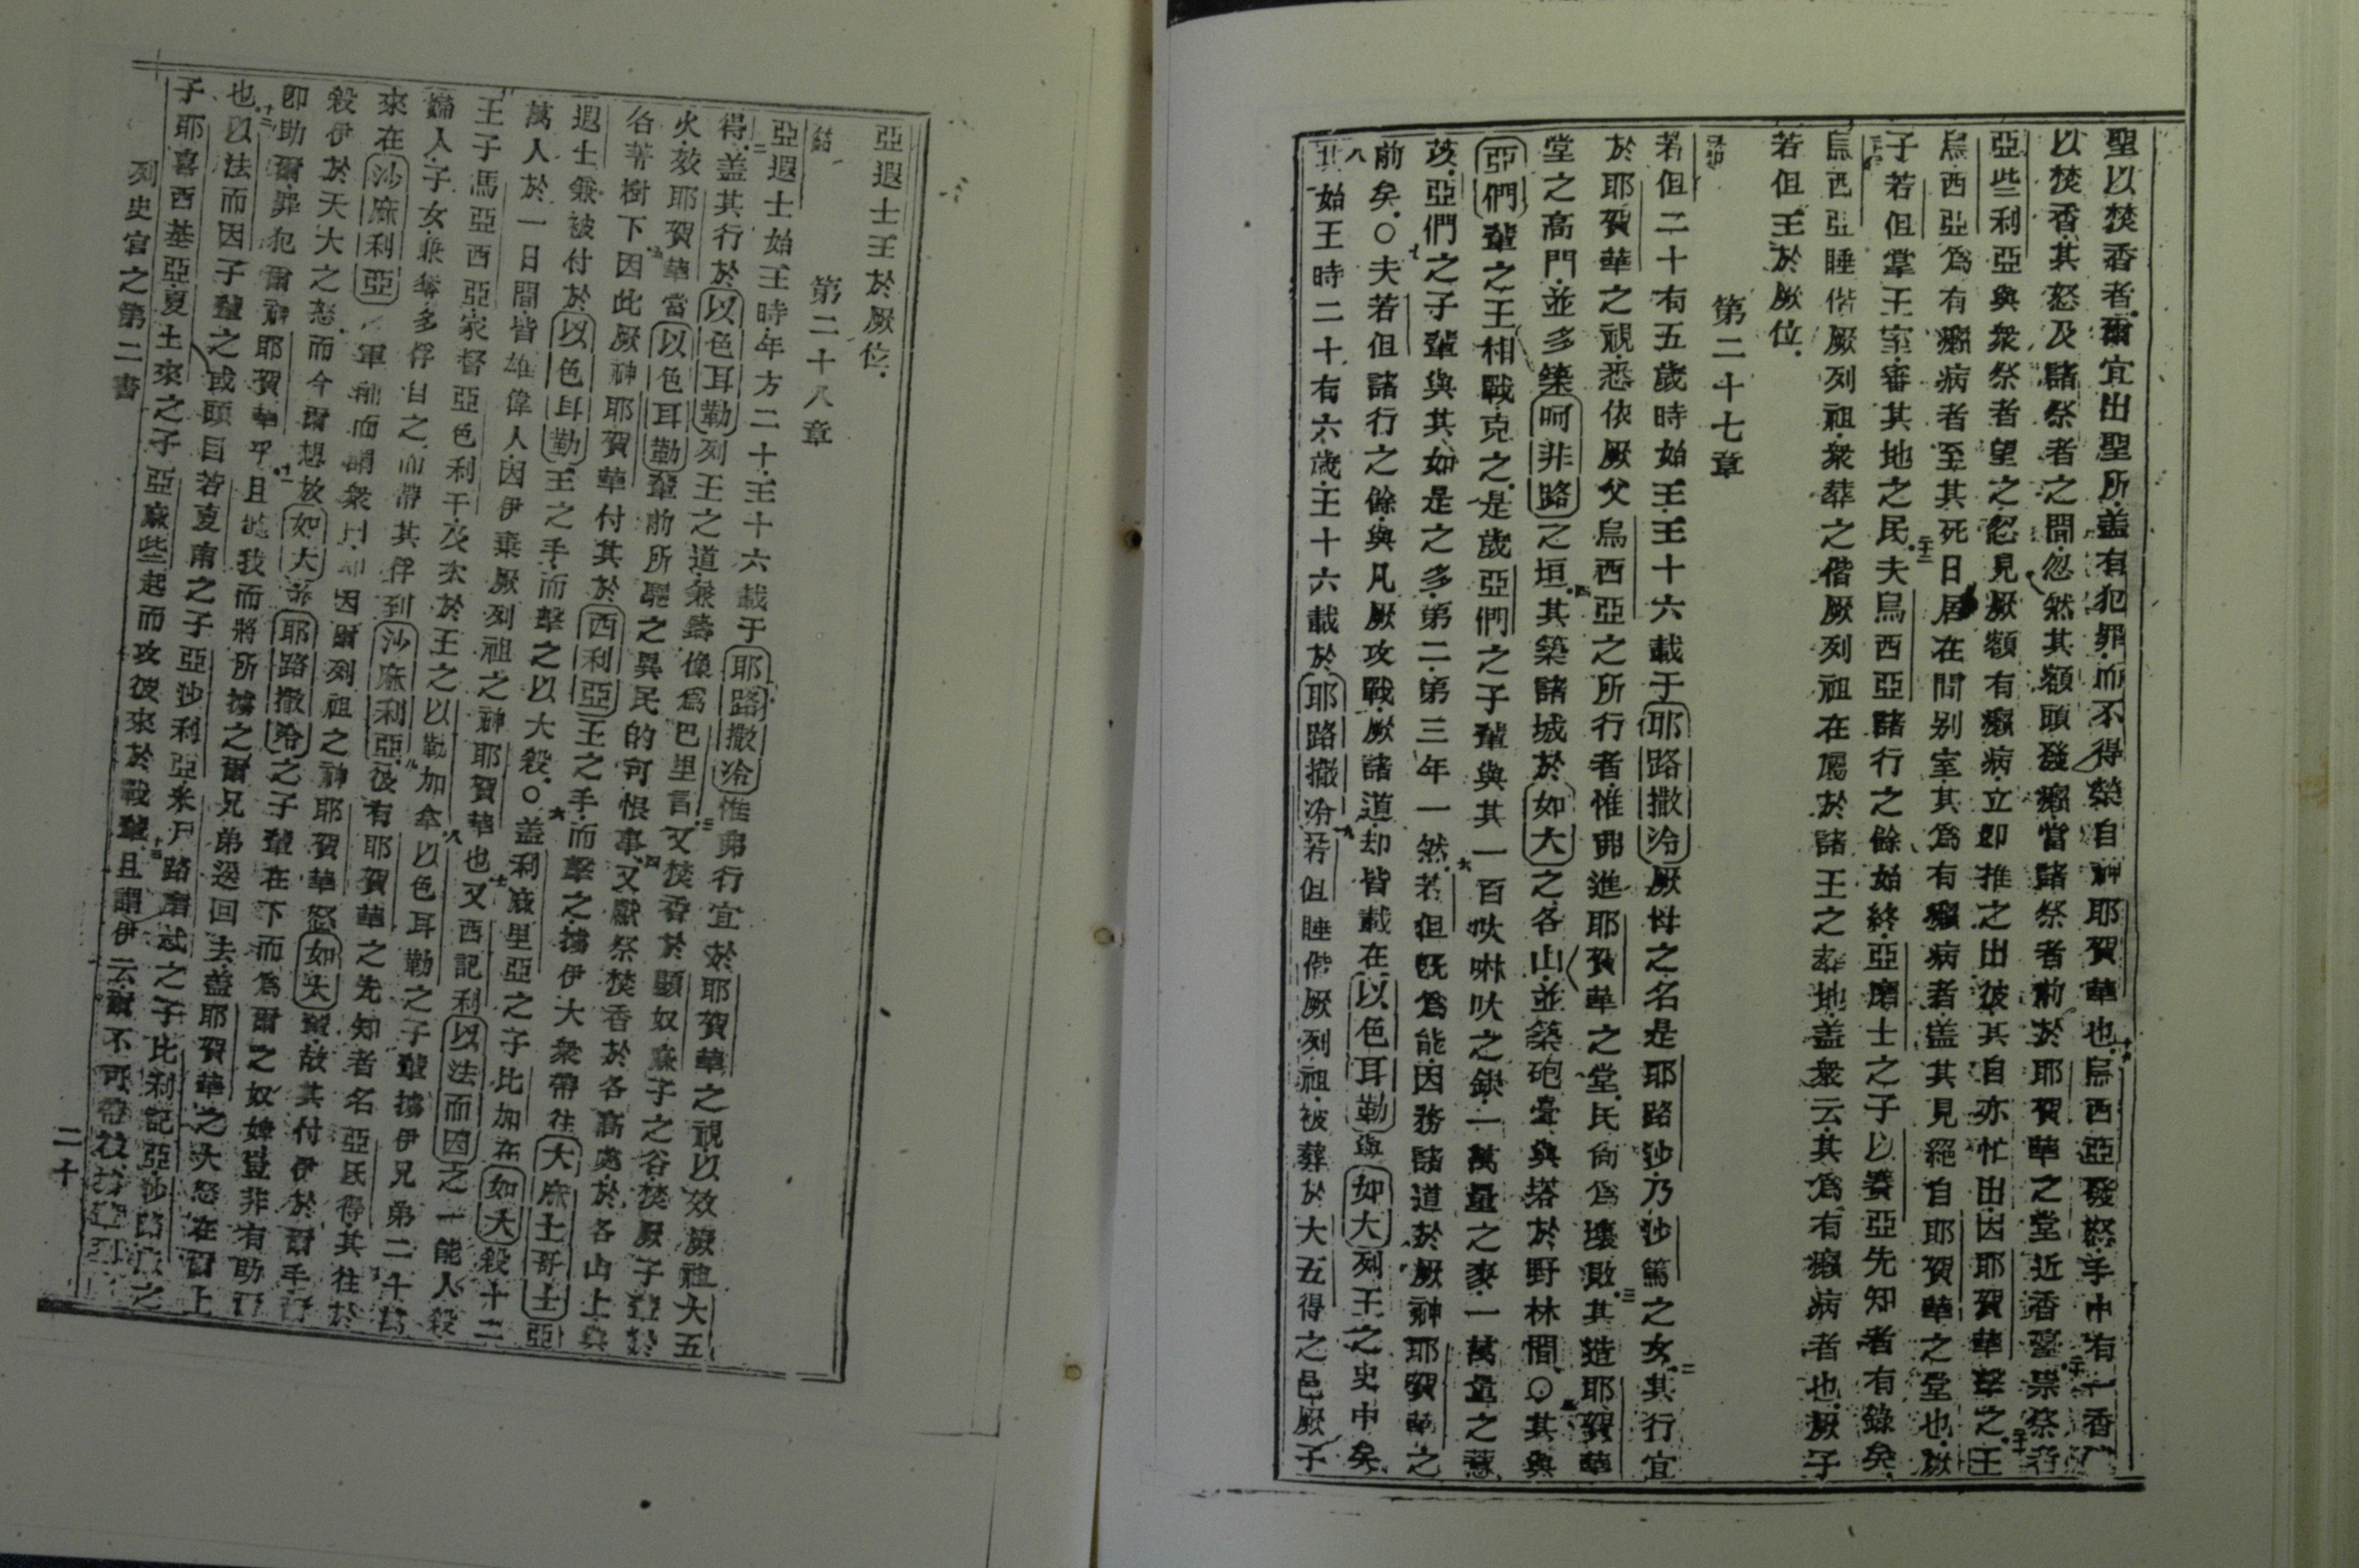 聖以焚香者爾宜出聖所盖有犯罪而不得榮自神耶賀華也烏西亞發怒手中有一香
以焚香其怒及諸祭者之間忽然其額頭發癩當諸祭者前於耶賀華之堂近香臺祟祭者
亞些利亞與衆祭者望之忽見厥額有癩病立即推之出彼其自亦忙出因耶賀華擊之王
烏西亞爲有癩病者至其死日居在間别室其爲有癩病者盖其見絕自耶賀華之堂也厥
子若但掌王室審其地之民夫烏西亞諸行之餘始終亞磨士之子以賽亞先知者有錄矣
烏西亞睡偕厥列祖衆葬之偕厥列祖在屬於諸王之葬地盖衆云其爲有癩病者也厥子
若但王於厥位
第二十七章
若但二十有五歲時始王王十六載于耶路撒冷厥母之名是耶路沙乃沙篤之女其行宜
於耶賀華之視悉依厥父烏西亞之所行者惟弗進耶賀華之堂民尚爲壞敗其造耶賀華
堂之高門並多築呵非路之垣其築諸城於如大之各山並築砲臺與塔於野林間〇其與
亞們輩之王相戰克之是歲亞們之子輩與其一百吠啉吠之銀一萬量之麥一萬量之薏
苡亞們之子輩與其如是之多第二第三年一然若但旣爲能因務諸道於厥神耶賀華之
前矣〇夫若但諸行之餘與凡厥攻戰厥諸道却皆載在以色耳勒與如大列王之史中矣
其始王時二十有六歲王十六載於耶路撒冷若但睡偕厥列祖被葬於大五得之邑厥子
亞遐士王於厥位
第二十八章
亞遐士始王時年方二十王十六載于耶路撒冷惟弗行宜於耶賀華之視以效厥祖大五
得盖其行於以色耳勒列王之道兼鑄像爲巴里言又焚香於顯奴麻子之谷焚厥子輩於
火效耶賀華當以色耳勒輩前所驅之異民的可恨事又獻祭焚香於各高處於各山上與
各菁樹下因此厥神耶賀華付其於西利亞王之手而擊之擄伊大衆帶往大麻士哥士亞
遐士兼被付於以色耳勒王之手而擊之以大殺〇盖利麻里亞之子比加在如大殺十二
萬人於一日間皆雄偉人因伊棄厥列祖之神耶賀華也又西記利以法而因之一能人殺
王子馬亞西亞家督亞色利干及次於王之以勒加拿以色耳勒之子輩擄伊兄弟二十萬
婦人子女兼奪多俘自之而帶其俘到沙麻利亞彼有耶賀華之先知者名亞氐得其往於
來在沙麻利亞之軍前而謂衆曰却因爾列祖之神耶賀華怒如大輩故其付伊於爾手爾
殺伊於天大之怒而今爾想放如大並耶路撒冷之子輩在下而爲爾之奴婢豈非有助爾
即助爾罪犯爾神耶賀華乎且聽我而將所擄之爾兄弟送回去盖耶賀華之大怒在爾上
也以法而因子輩之或頭目若夏南之子亞沙利亞米尸路磨忒之子比利記亞沙路麻之
子耶喜西基亞夏土來之子亞麻些起而攻彼來於戰輩且謂伊云爾不可帶
列史官之第二書
二十